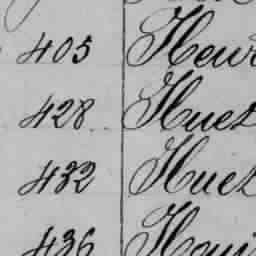 405 Hewi
428 Huet
432 Huet
436